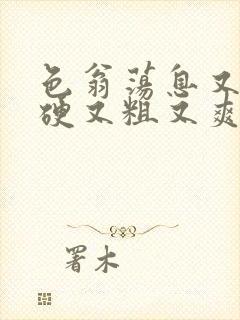 色翁荡息又
硬又粗又爽
署木